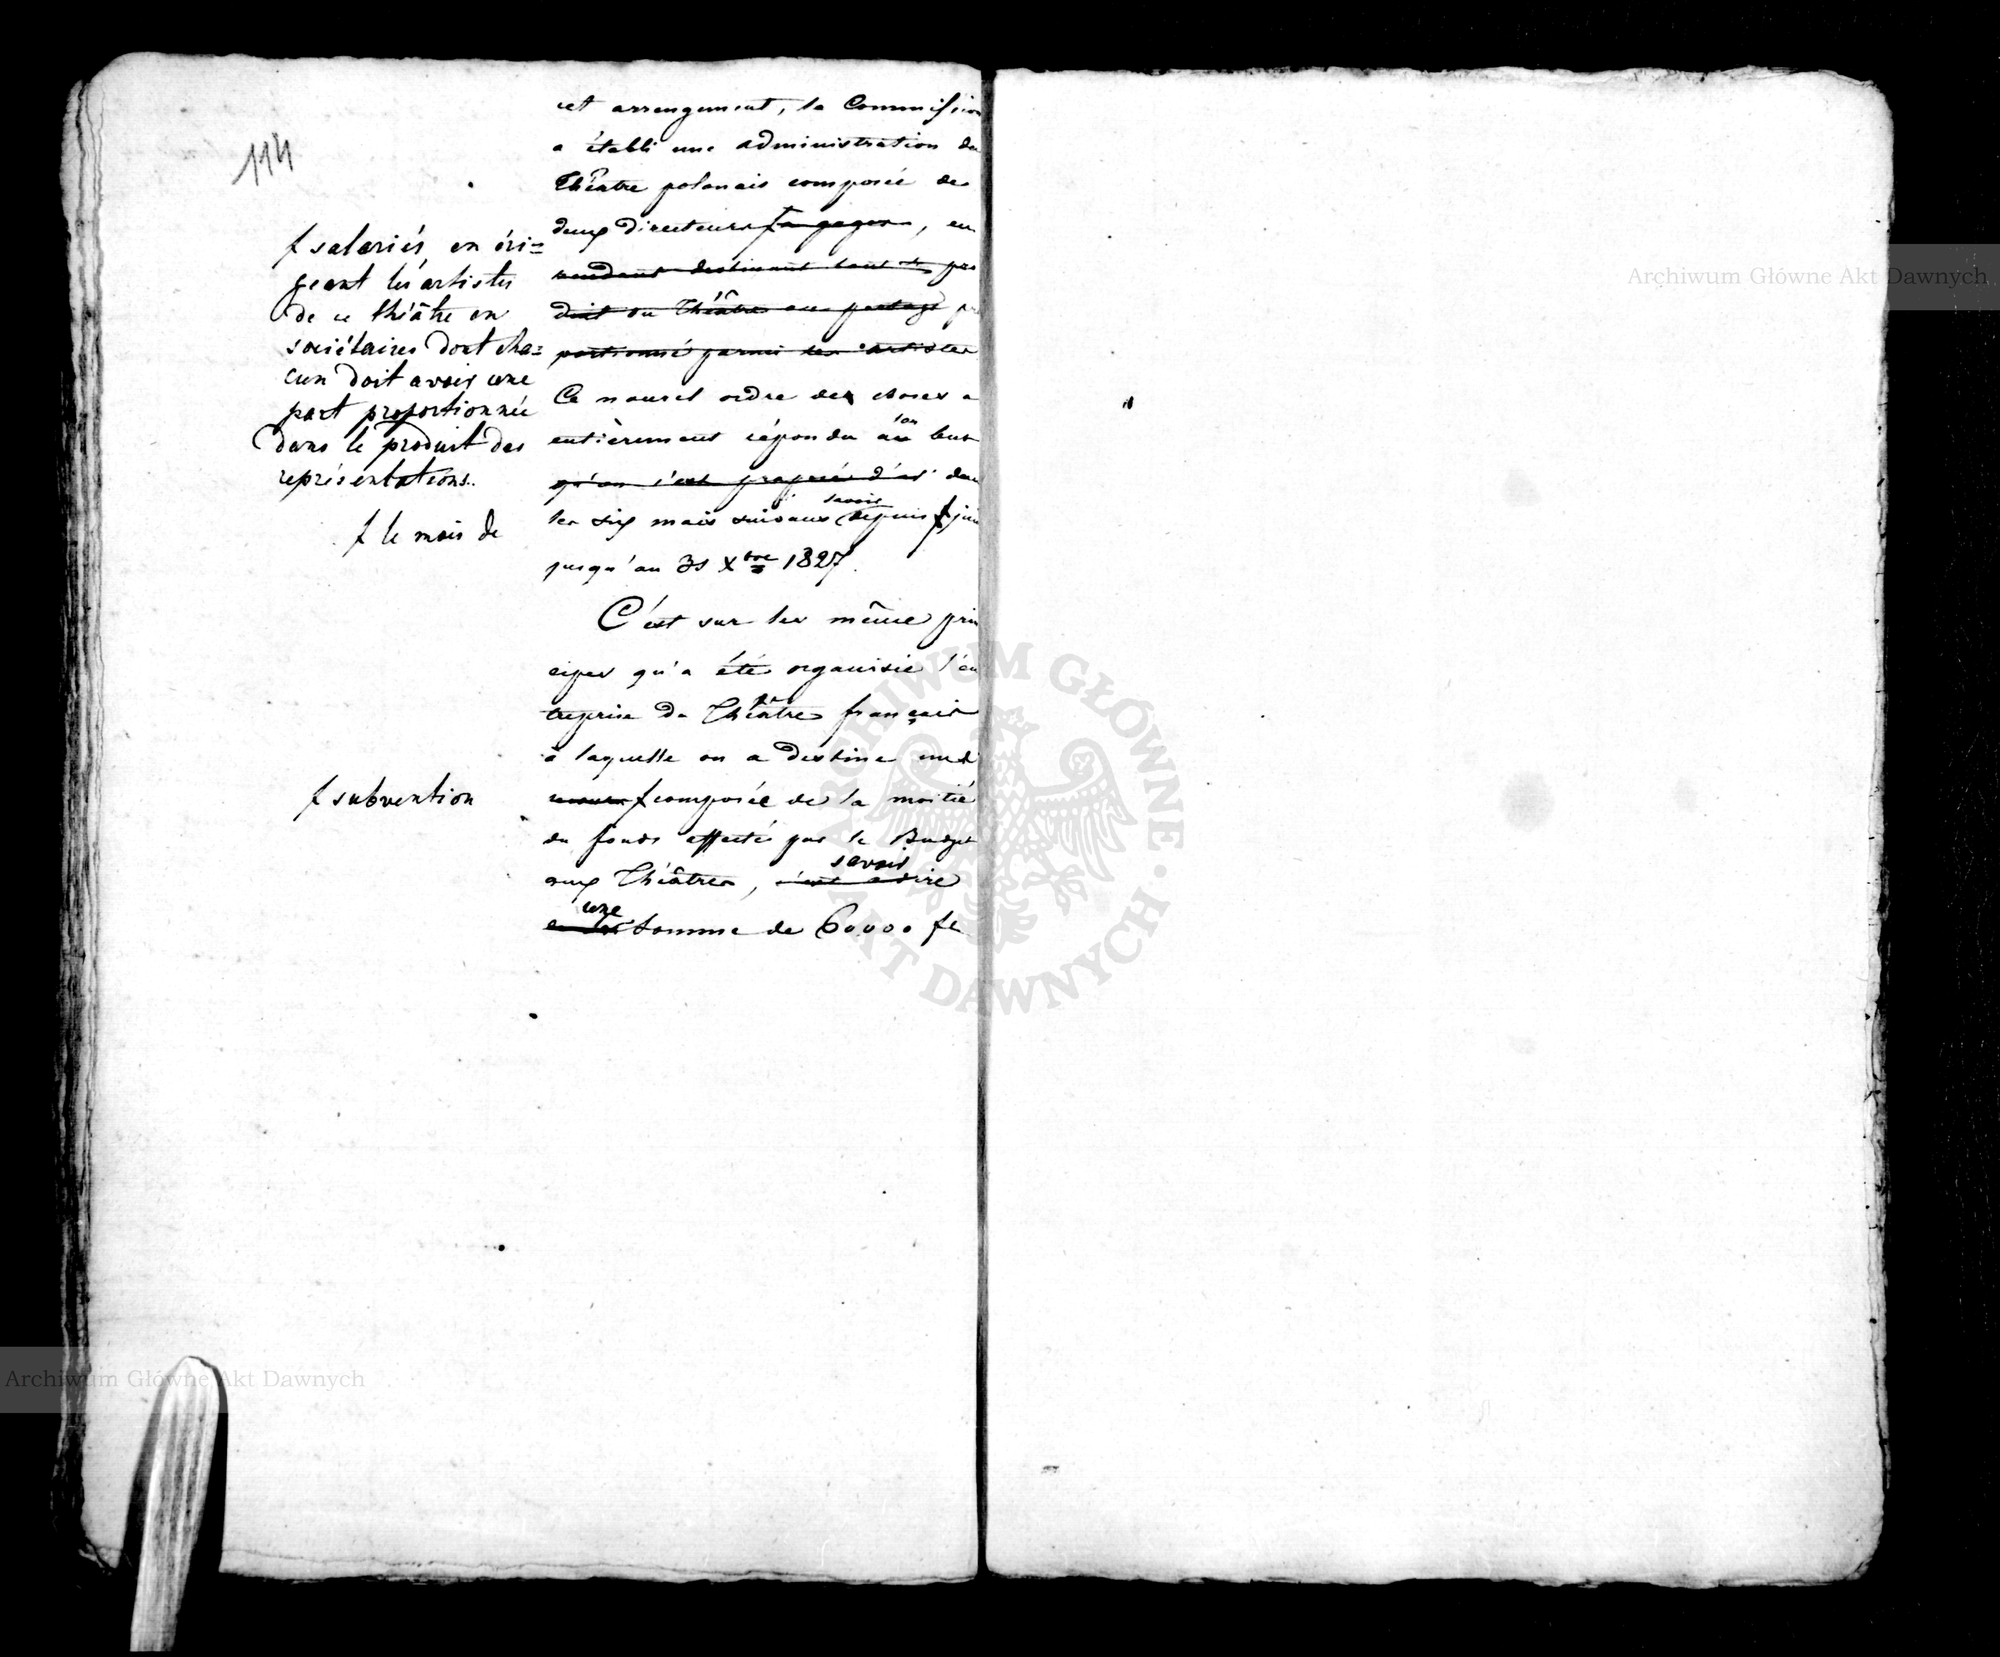 114
cet arrangement, la Commission
a établi une administration du
Théâtre polonais composée de
deux directeurs à gages, en
rendant destinant tout le pro
duit du Théâtre au partage pro
portionné parmi les artistes
Ce nouvel ordre des choses a
entièrement répondu au but
qu'on s'est proposé d'as dans
les six mois suivans savoir depuis juin
jusqu'au 31 Xbre 1827.
C'est sur les même prin
cipes qu'a été organisée l'en
treprise du Théâtre français
à laquelle on a destiné une
composée de la moitié
du fonds affecté par le Budget
aux Théâtres, c'est à dire savoir
une somme de 60000 fl
f salariés, en éri=
geant les artistes
de ce théâtre en
sociétaires dont cha=
cun doit avoir une
part proportionnée
dans le produit des
représentations.
f le mois de
f subvention
Archiwum Główne Akt Dawnych
Archiwum Główne Akt Dawnych
ARCHIWUM GŁÓWNE AKT DAWNYCH